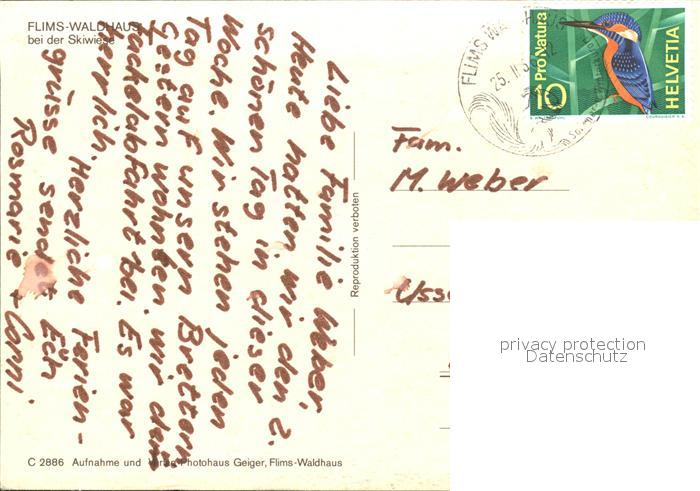 FLIMS-WALDHAUS
bei der Skiwiese
Liebe Familie Weber,
Heute hatten wir den 2.
schönen Tag in dieser
Woche. Wir stehen jeden
Tag auf unsern Brettern
Gestern wohnten wir dem
Fackelabfahrt bei. Es war
herrlich. Herzliche Ferien-
grüsse sendet Euh
Rosmarie + Conni
C 2886 Aufnahme und Verlag Photohaus Geiger, Flims-Waldhaus
Reproduktion verboten
FLIMS WALDHAUS
25. II
10 Pro Natura
HELVETIA
COURVOISIER S.A.
Fam.
M. Weber
privacy protection
Datenschutz